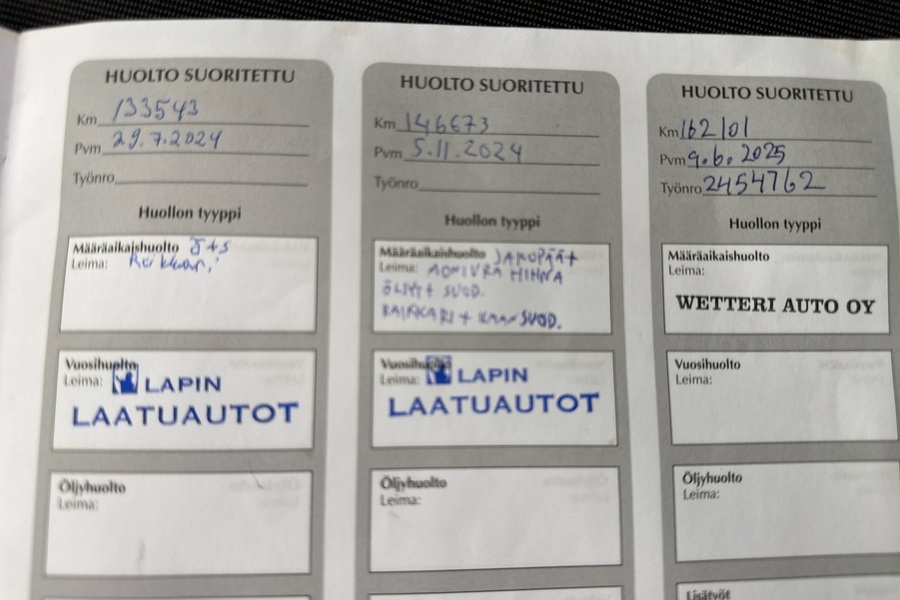 HUOLTO SUORITETTU
Km 133543
Pvm 29.7.2024
Työnro
Huollon tyyppi
Määräaikaishuolto
Leima:
Vuosihuolto
Leima: LAPIN
LAATUAUTOT
Öljyhuolto
Leima:
HUOLTO SUORITETTU
Km 146673
Pvm 5.11.2024
Työnro
Huollon tyyppi
Määräaikaishuolto JAKOPÄÄ+
Leima: MONIURA HIHNA
ÖLJYT+ SUOD.
RAIKKARI + ILMANSUOD.
Vuosihuolto
Leima: LAPIN
LAATUAUTOT
Öljyhuolto
Leima:
HUOLTO SUORITETTU
Km 162101
Pvm 9.6. 2025
Työnro 2454762
Huollon tyyppi
Määräaikaishuolto
Leima:
WETTERI AUTO OY
Vuosihuolto
Leima:
Öljyhuolto
Leima:
Lisätyöt